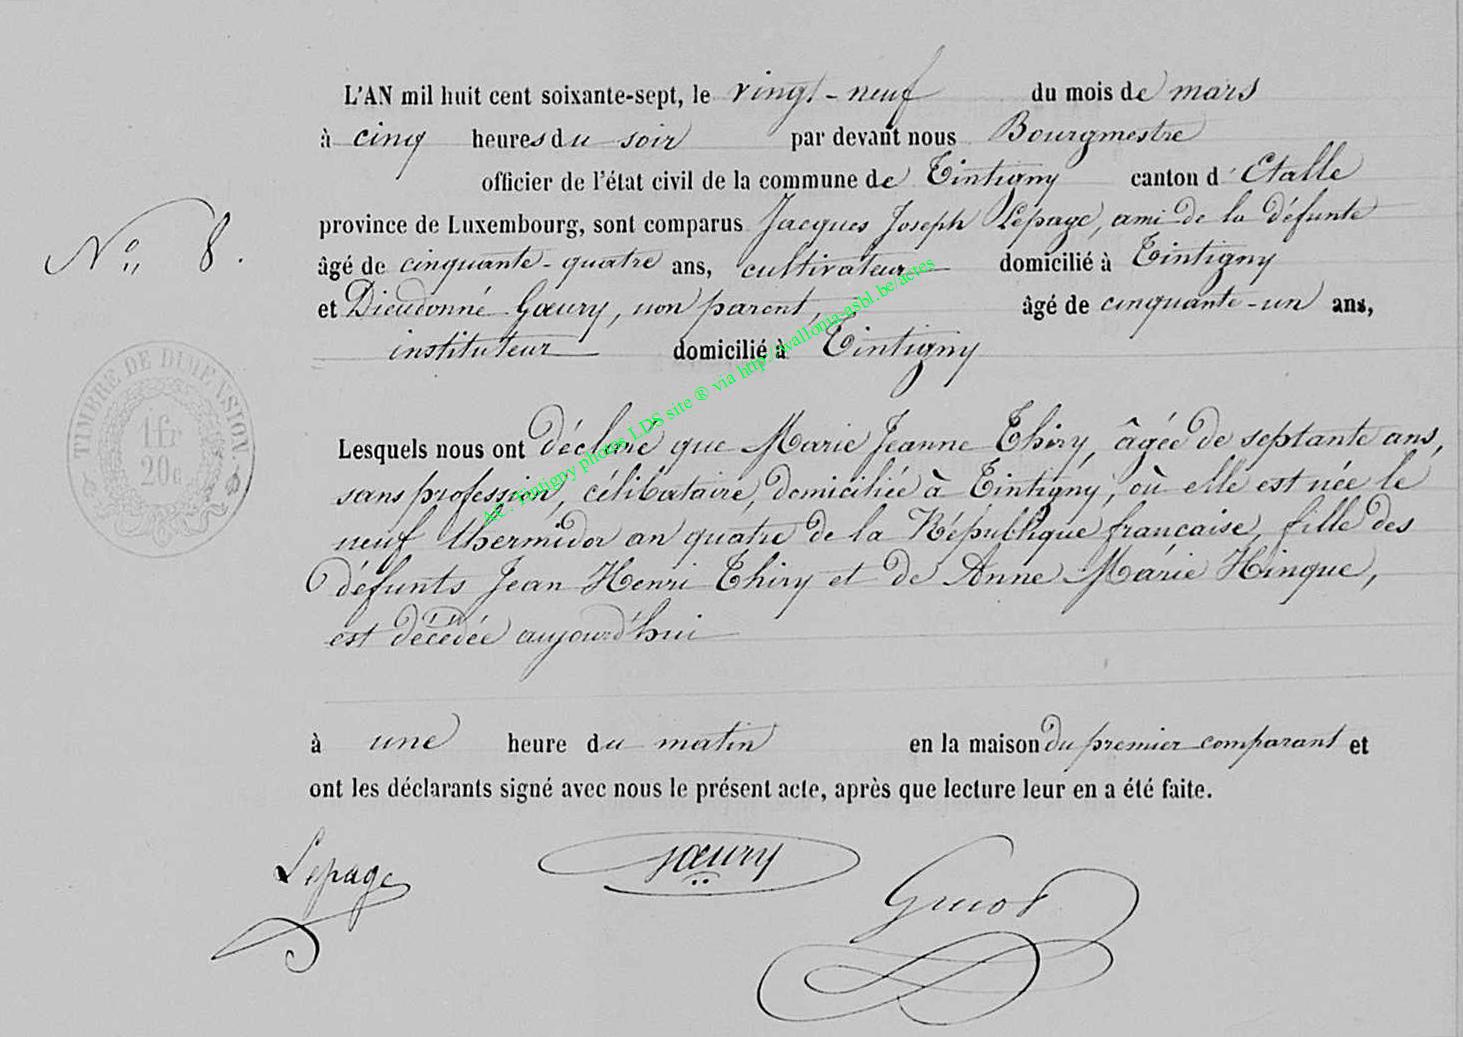 L'AN mil huit cent soixante-sept, le vingt-neuf du mois de mars
à cinq heures du soir par devant nous Bourgmestre
officier de l'état civil de la commune de Tintigny canton d'Etalle
N° 8.
province de Luxembourg, sont comparus Jacques Joseph Lepage, ami de la défunte
âgé de cinquante-quatre ans, cultivateur domicilié à Tintigny
et Dieudonné Gœury, non parent, âgé de cinquante-un ans,
instituteur domicilié à Tintigny
TIMBRE DE DIMENSION.
1 fr
20c
AC. Tintigny photos LDS site ® via http://wallonia-asbl.be/actes
Lesquels nous ont déclaré que Marie Jeanne Thiry, âgée de septante ans,
sans profession, célibataire, domiciliée à Tintigny, où elle est née le
neuf thermidor an quatre de la République française, fille des
défunts Jean Henri Thiry et de Anne Marie Hinque,
est décédée aujourd'hui
à une heure du matin en la maison du premier comparant et
ont les déclarants signé avec nous le présent acte, après que lecture leur en a été faite.
Lepage
Gœury